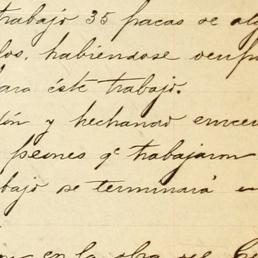 trabajo 35 pacas de alg
los, habiéndose ocup
para éste trabajo.
ón y hechando
peones qe trabajaron
bajo se terminará
en la obra de